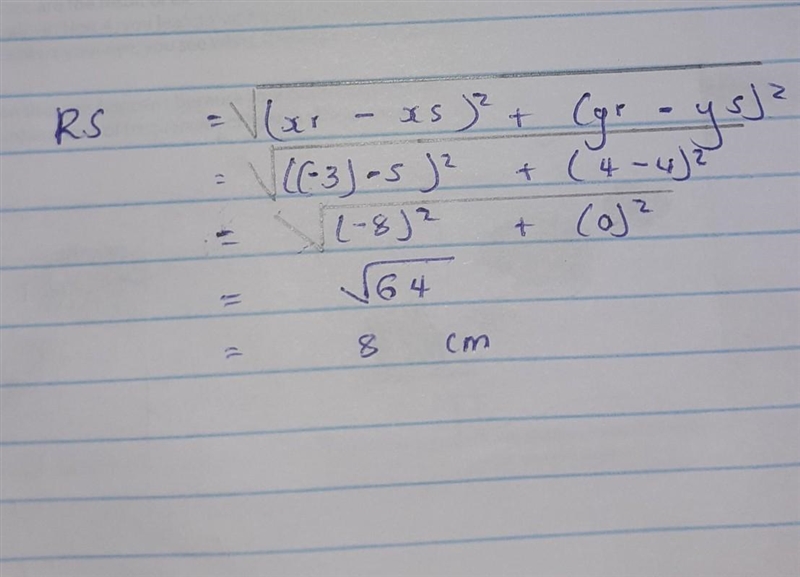 RS = √(xr - xs)² + (yr - ys)²
= √((-3) - 5)² + (4 - 4)²
= √(-8)² + (0)²
= √64
= 8 cm